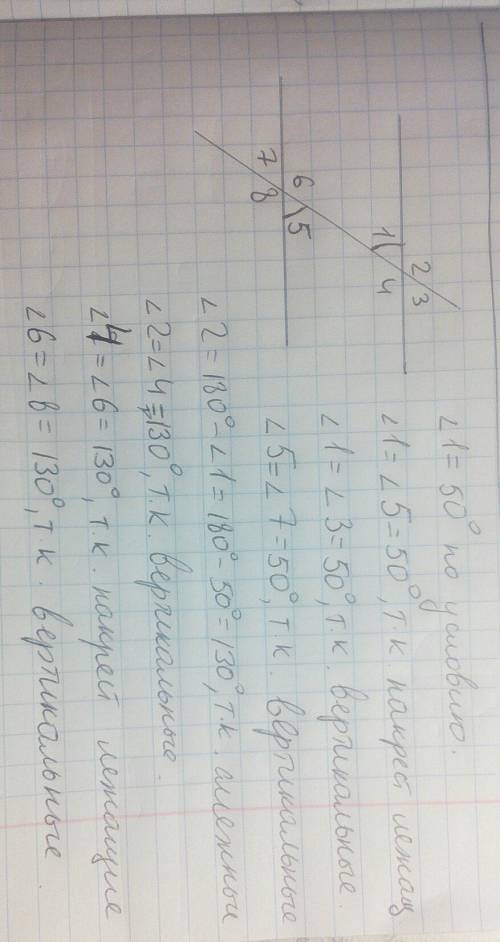 2 3
1 4
6 5
7 8
∠1 = 50° по условию.
∠1 = ∠5 = 50°, т.к. накрест лежащ
∠1 = ∠3 = 50°, т.к. вертикальные.
∠5 = ∠7 = 50°, т.к. вертикальные
∠2 = 180° - ∠1 = 180° - 50° = 130°, т.к. смежные
∠2 = ∠4 = 130°, т.к. вертикальные.
∠4 = ∠6 = 130°, т.к. накрест лежащие
∠6 = ∠8 = 130°, т.к. вертикальные.